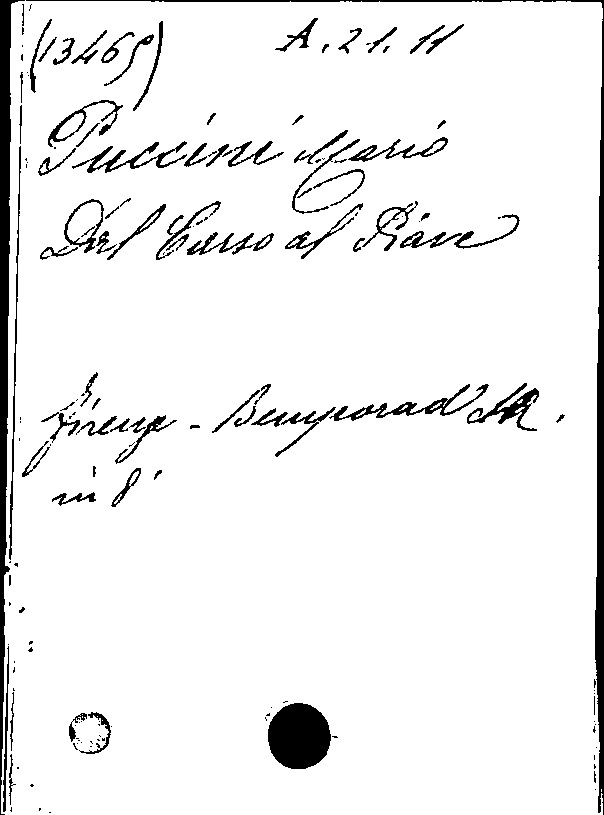 (13465) A. 21. 11
Puccini Mario
Dal Carso al Piave
Firenze - Bemporad
in 8°